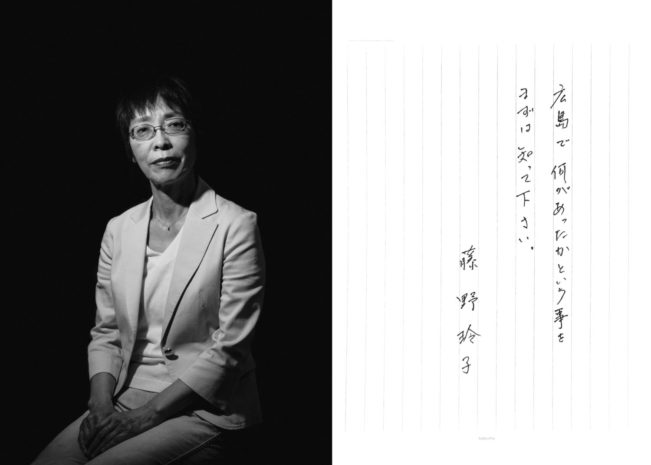 広島で何があったかという事を
まずは知って下さい。
藤野玲子